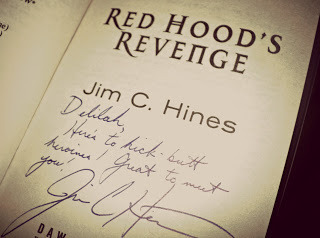 RED HOOD'S
REVENGE
Jim C. Hines
Delilah,
Here's to kick-butt
heroines! Great to meet
you!
Jim C Hines
DAW